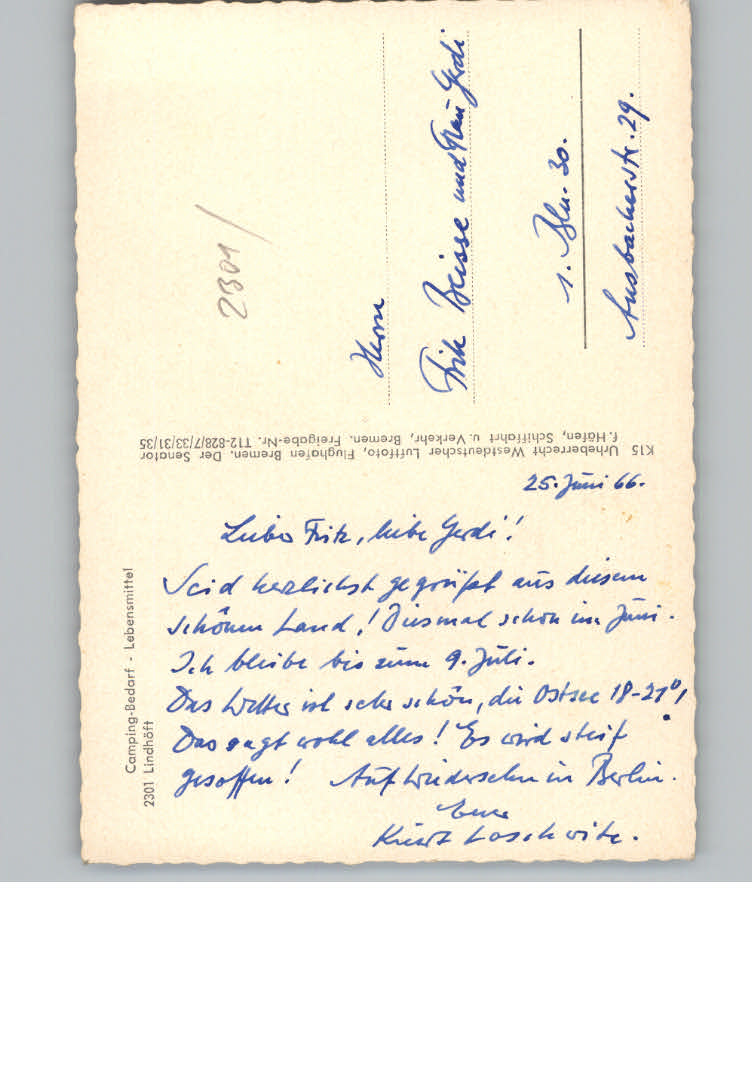 Camping-Bedarf - Lebensmittel
2301 Lindhöft
25. Juni 66.
Lieber Fritz, liebe Gerdi!
Seid herzlichst gegrüßt aus diesem
schönen Land! Diesmal schon im Juni.
Ich bleibe bis zum 9. Juli.
Das Wetter ist sehr schön, die Ostsee 18-21°!
Das sagt wohl alles! Es wird steif
gesoffen! Auf Wiedersehn in Berlin.
Euer
Kurt Loschwitz.
K15 Urheberrecht Westdeutscher Luftfoto, Flughafen Bremen. Der Senator
f. Häfen, Schiffahrt u. Verkehr, Bremen, Freigabe-Nr. T12-828/7/33/31/35
2301
Herrn
Fritz und Frau Gerdi
1. Bln. 30.
Ansbacherstr. 29.